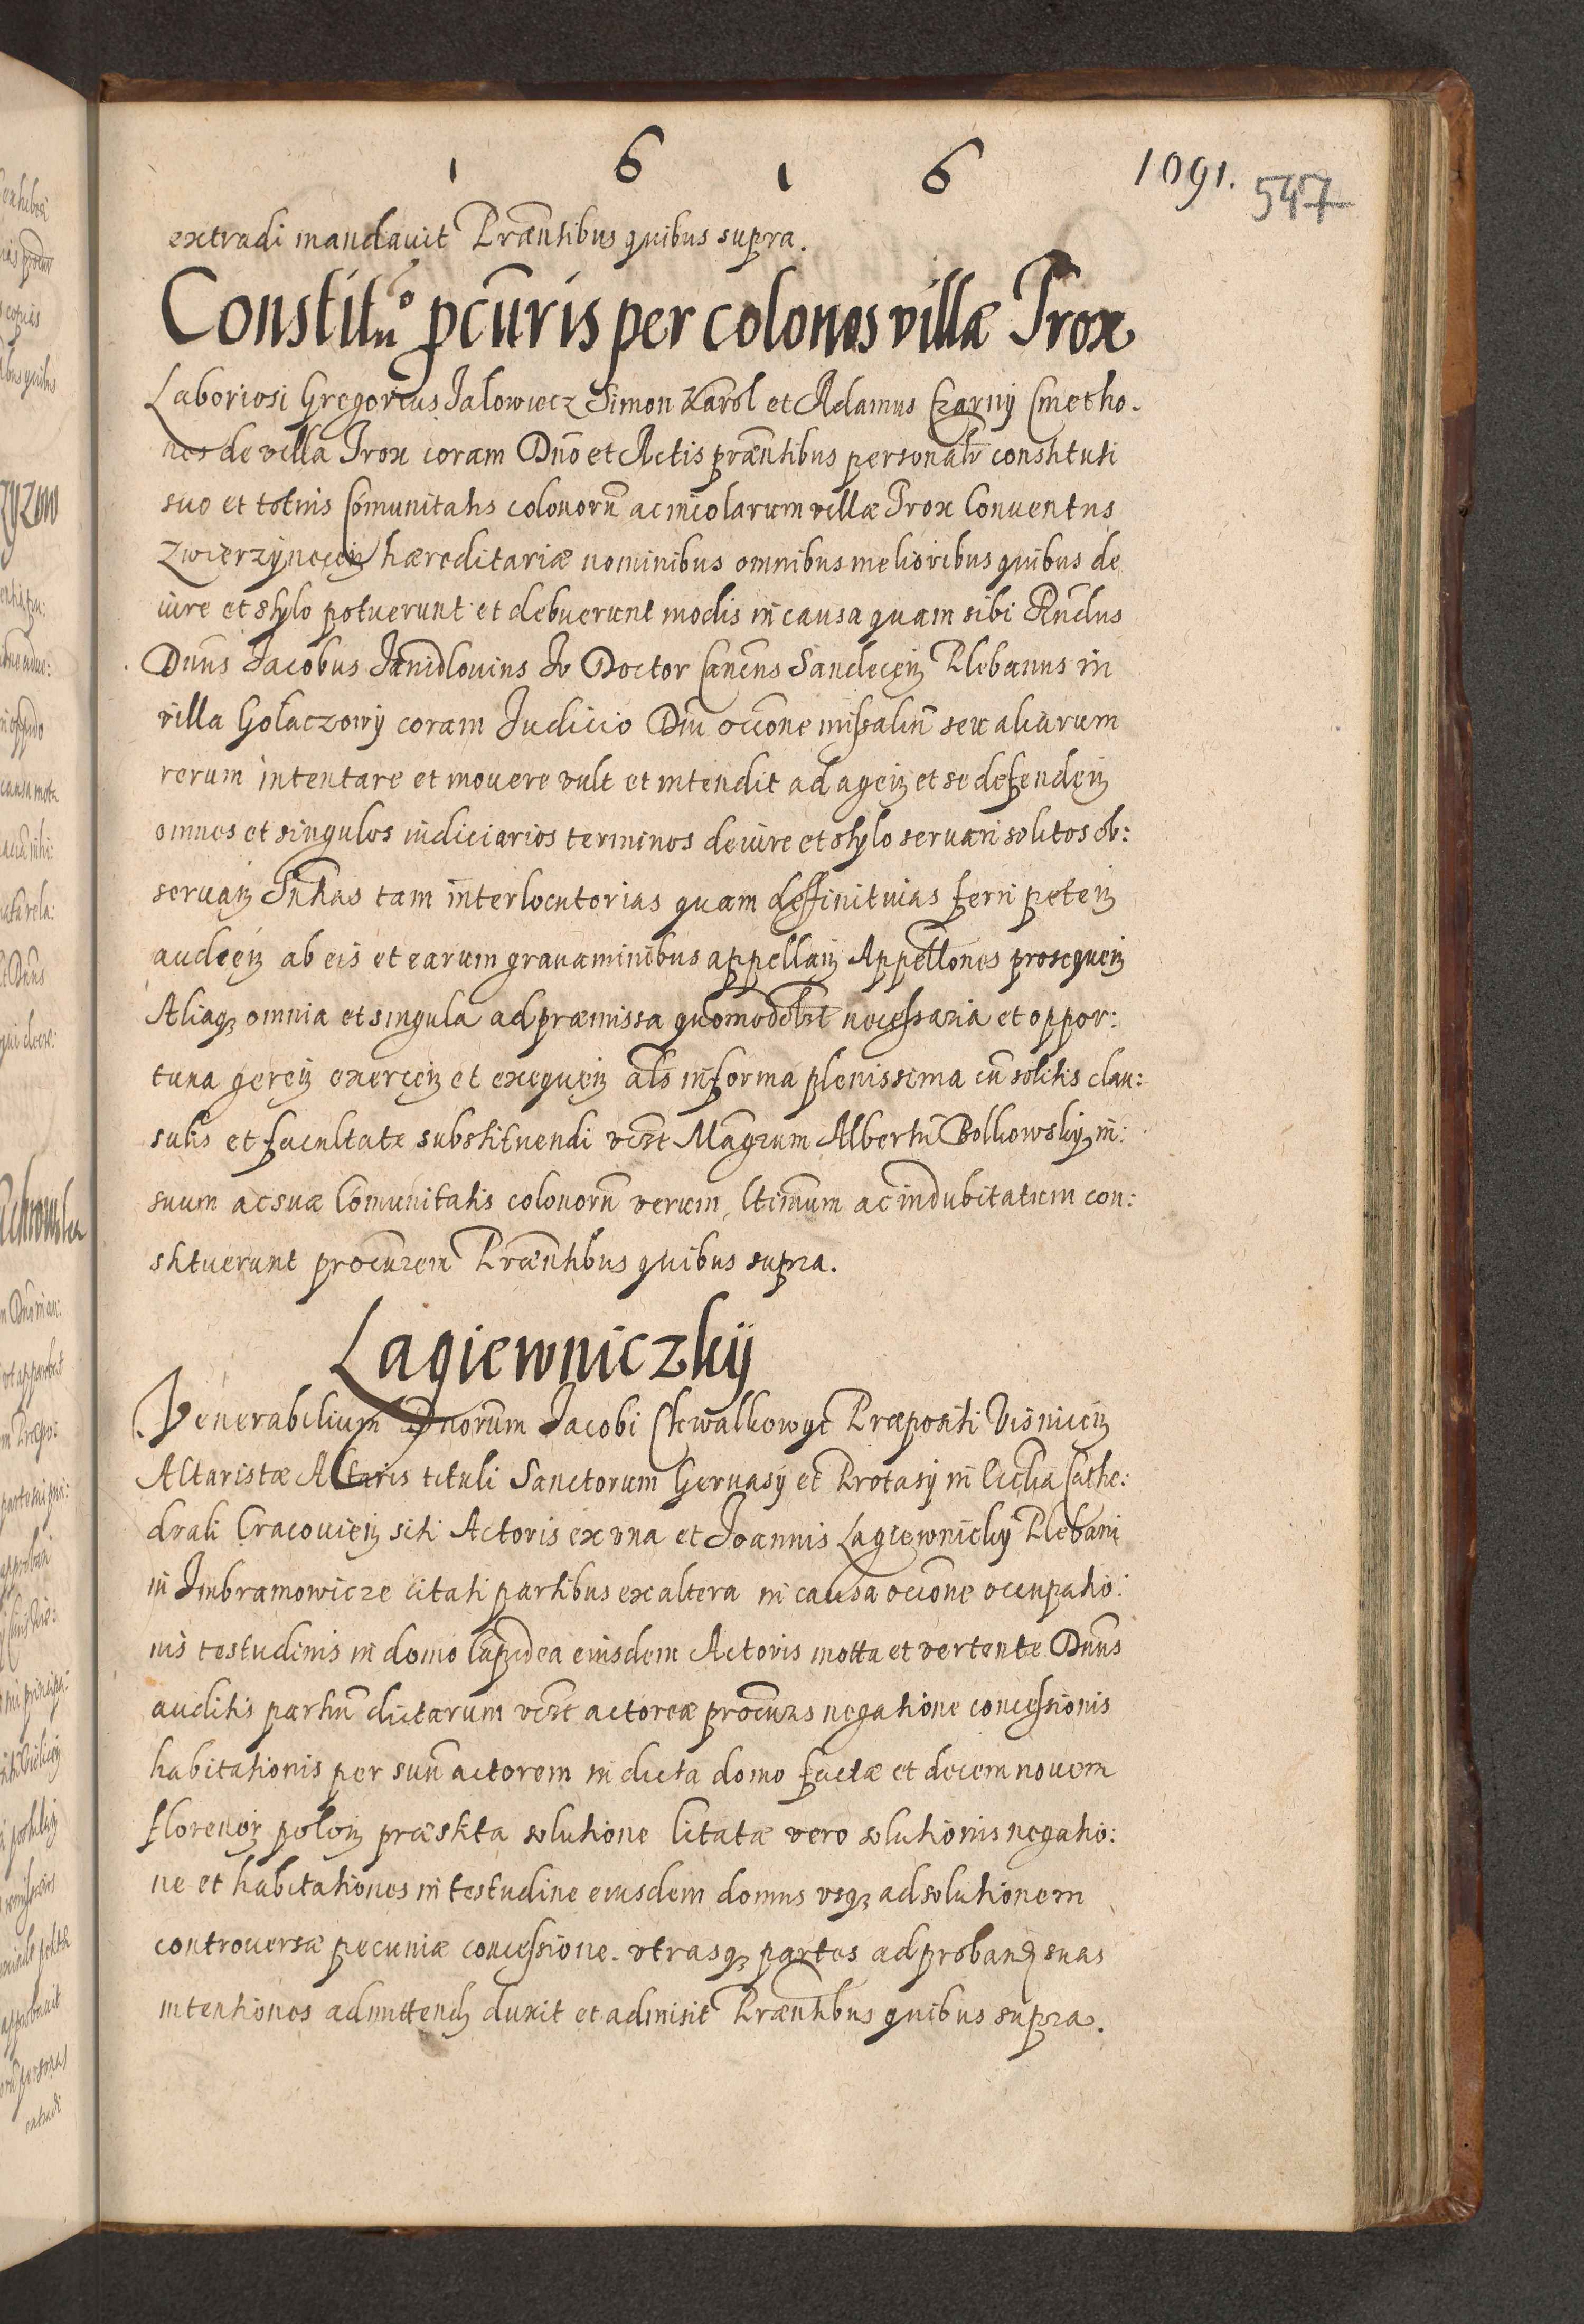 1 6 1 6 1091. 547
extradi mandauit Præñtibus quibus supra.
Constitutᵒ pcũris per colonos villæ Trox
Laboriosi Gregorius Jalowiecz Simon Karol et Adamus Czarnÿ Cmetho-
nes de villa Trox coram Dño et Actis præñtibus personalr̃ constituti
suo et totius Com̃unitatis colonorũ ac incolarum villæ Trox Conuentus
Zwierzÿnecen̄ hæreditariæ nominibus omnibus melioribus quibus de
iure et stylo potuerunt et debuerunt modis in causa quam sibi Rñdus
Dnũs Jacobus Janidlouius Jv Doctor Canc̃us Sandecen̄ Plebanus in
villa Gołaczowÿ coram Judicio Dñi occõne missaliũ seu aliarum
rerum intentare et mouere vult et intendit ad agen̄ et se defenden̄
omnes et singulos iudiciarios terminos de iure et stylo seruari solitos ob:
seruan̄ Sñtias tam interlocutorias quam deffinitiuas ferri peten̄
audien̄ ab eis et earum grauaminibus appellan̄ Appellõnes prosequen̄
Aliaqʒ omnia et singula ad præmissa quomodolb̃t necessaria et oppor:
tuna geren̄ exercen̄ et exequen̄ als̃ in forma plenissima cũ solitis clau:
sulis et facultate substituendi vcz̃t Mãgrum Albertũ Bolkowskÿ in:
suum ac suæ Com̃unitatis colonorũ verum, ltimũm ac indubitatum con:
stituerunt procũrem Præñtibus quibus supra.
Lagiewniczkÿ
Venerabilium Dnorũm Jacobi Chwalkowyc Præpositi Visnicen̄
Altaristæ Altaris tituli Sanctorum Geruasÿ et Protasÿ in Ecclĩa Cathe:
drali Cracouien̄ siti Actoris ex vna et Joannis Lagiewnickÿ Plebani
in Imbramowicze citati partibus ex altera in causa occõne occupatio:
nis testudinis in domo lapidea eiusdem Actoris motta et vertente Dnũs
auditis partiũ dictarum vcz̃t actoreæ procũras negatione concessionis
habitationis per suũ actorem in dicta domo factæ et decem nouem
florenor̄ polon̄ præstita solutione Citatæ vero solutionis negatio:
ne et habitationes in testudine eiusdem domus vsqʒ ad solutionem
controuersæ pecuniæ concessione. vtrasqʒ partes ad proband̄ suas
intentiones admittend̄ duxit et admisit Præñtibus quibus supra.